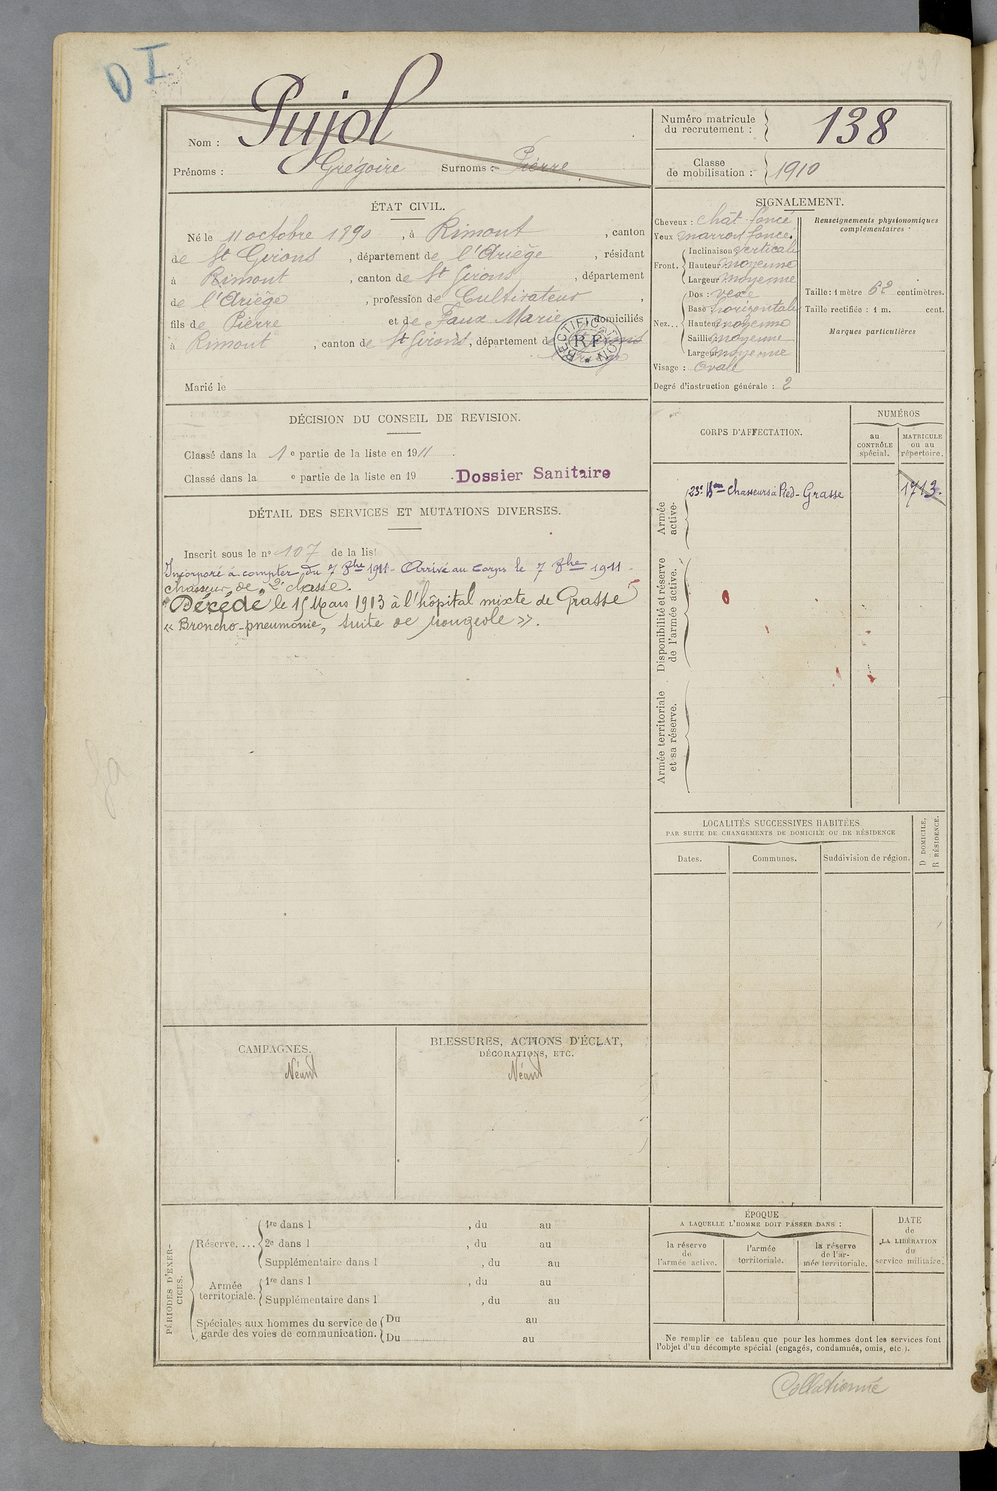 D I
Nom : Pujol
Prénoms : Grégoire Surnoms : Pierre
Numéro matricule du recrutement : 138
Classe de mobilisation : 1910
ÉTAT CIVIL.
Né le 11 octobre 1890, à Rimont, canton
de St Girons, département de l'Ariège, résidant
à Rimont, canton de St Girons, département
de l'Ariège, profession de Cultivateur
fils de Pierre et de Faux Marie domiciliés
à Rimont, canton de St Girons, département de
RECTIFICATION RF
Marié le
SIGNALEMENT.
Cheveux : chât foncé
Yeux marron foncé.
Front. Inclinaison verticale
Hauteur moyenne
Largeur moyenne
Nez... Dos : vexe
Base horizontale
Hauteur moyenne
Saillie moyenne
Largeur moyenne
Visage : ovale
Degré d'instruction générale : 2
Renseignements physionomiques
complémentaires :
Taille : 1 mètre 62 centimètres.
Taille rectifiée : 1 m. cent.
Marques particulières
DÉCISION DU CONSEIL DE REVISION.
Classé dans la 1e partie de la liste en 1911.
Classé dans la e partie de la liste en 19 .
Dossier Sanitaire
DÉTAIL DES SERVICES ET MUTATIONS DIVERSES.
Inscrit sous le n° 107 de la list
Incorporé à compter du 7 8bre 1911 - Arrivé au corps le 7 8bre 1911 -
chasseur de 2e classe.
Décédé le 15 Mars 1913 à l'hôpital mixte de Grasse
« Broncho-pneumonie, suite de rougeole ».
CORPS D'AFFECTATION.
NUMÉROS
au
CONTRÔLE
spécial.
MATRICULE
ou au
répertoire.
Armée
active.
23e Bon Chasseurs à Pied - Grasse 1713.
Disponibilité et réserve
de l'armée active.
Armée territoriale
et sa réserve.
LOCALITÉS SUCCESSIVES HABITÉES
PAR SUITE DE CHANGEMENTS DE DOMICILE OU DE RÉSIDENCE
D DOMICILE,
R RÉSIDENCE.
Dates.
Communes.
Subdivision de région.
CAMPAGNES.
Néant
BLESSURES, ACTIONS D'ÉCLAT,
DÉCORATIONS, ETC.
Néant
PÉRIODES D'EXER-
CICES.
Réserve....
1re dans l , du au
2e dans l , du au
Supplémentaire dans l , du au
Armée
territoriale.
1re dans l , du au
Supplémentaire dans l , du au
Spéciales aux hommes du service de
garde des voies de communication.
Du au
Du au
ÉPOQUE
A LAQUELLE L'HOMME DOIT PASSER DANS :
la réserve
de
l'armée active.
l'armée
territoriale.
la réserve
de l'ar-
mée territoriale.
DATE
de
LA LIBÉRATION
du
service militaire.
Ne remplir ce tableau que pour les hommes dont les services font
l'objet d'un décompte spécial (engagés, condamnés, omis, etc.).
Collationné